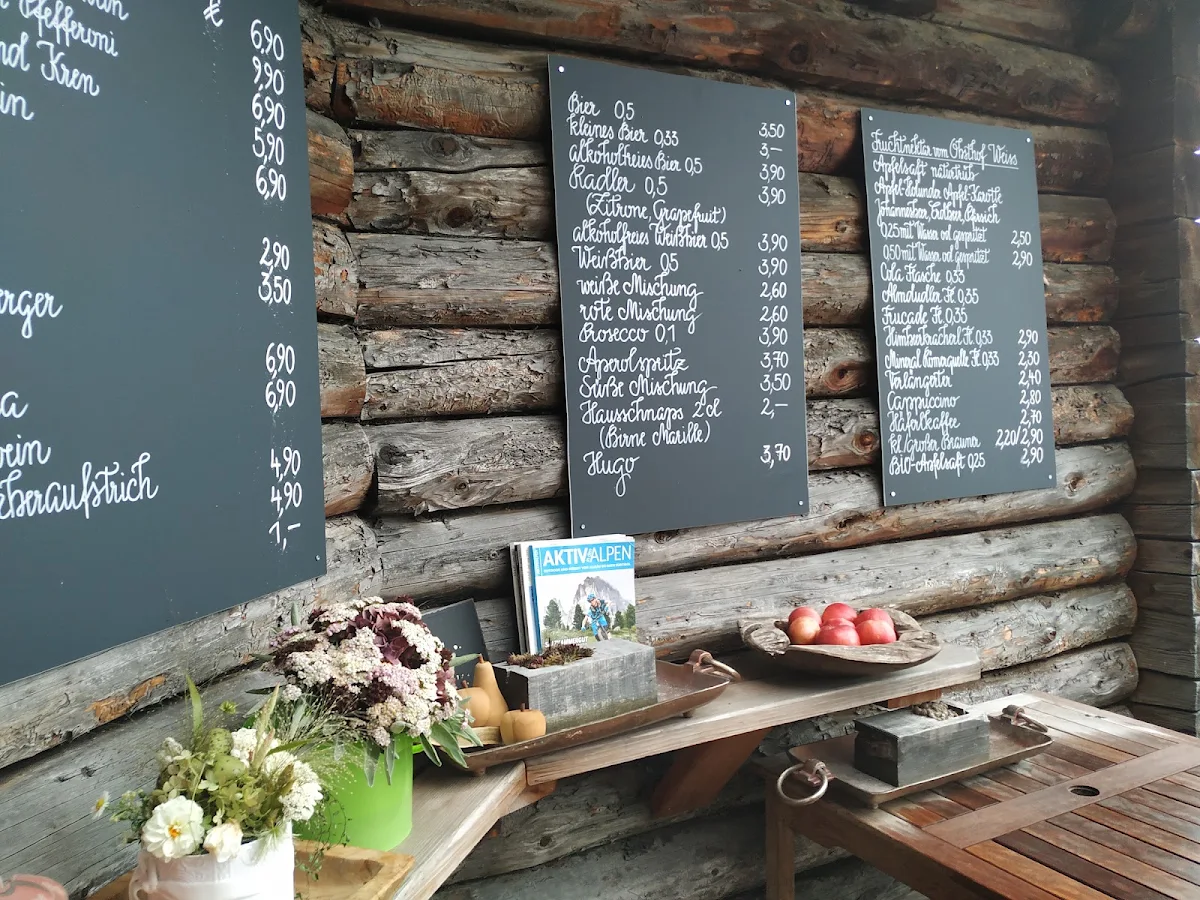 €
Pfefferoni 6,90
und Kren 9,90
6,90
5,90
6,90
2,90
3,50
6,90
6,90
4,90
4,90
1,–
Bier 0,5 3,50
kleines Bier 0,33 3,–
alkoholfreies Bier 0,5 3,90
Radler 0,5 3,90
(Zitrone, Grapefruit)
alkoholfreies Weißbier 0,5 3,90
Weißbier 0,5 3,90
weiße Mischung 2,60
rote Mischung 2,60
Prosecco 0,1 3,90
Aperolspritz 3,70
Süße Mischung 3,50
Hausschnaps 2cl 2,–
(Birne Marille)
Hugo 3,70
Fruchtnektar vom Obsthof Weiss
Apfelsaft naturtrüb
Apfel-Holunder Apfel-Karotte
Johannisbeer, Erdbeer, Pfirsich
0,25 mit Wasser od gespritzt 2,50
0,50 mit Wasser od gespritzt 2,90
Cola Flasche 0,33
Almdudler Fl 0,35
Frucade Fl. 0,35
Himbeerkracherl Fl 0,33 2,90
Mineral Römerquelle Fl 0,33 2,30
Verlängerter 2,40
Cappuccino 2,80
Häferlkaffee 2,70
kl./Großer Brauner 2,20/2,90
Bio-Apfelsaft 0,25 2,90
AKTIV ALPEN